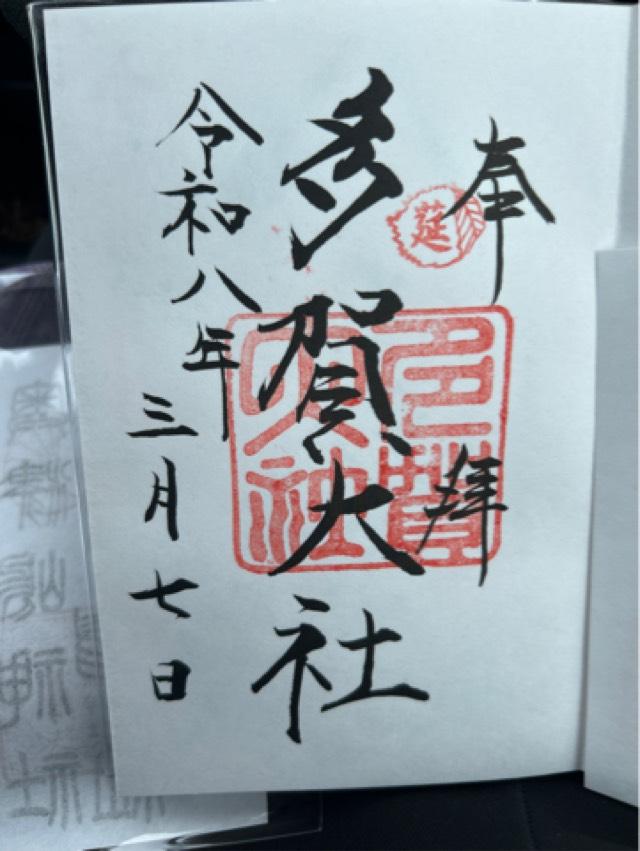 奉拝
延
多賀大社
多賀大社
令和八年三月七日